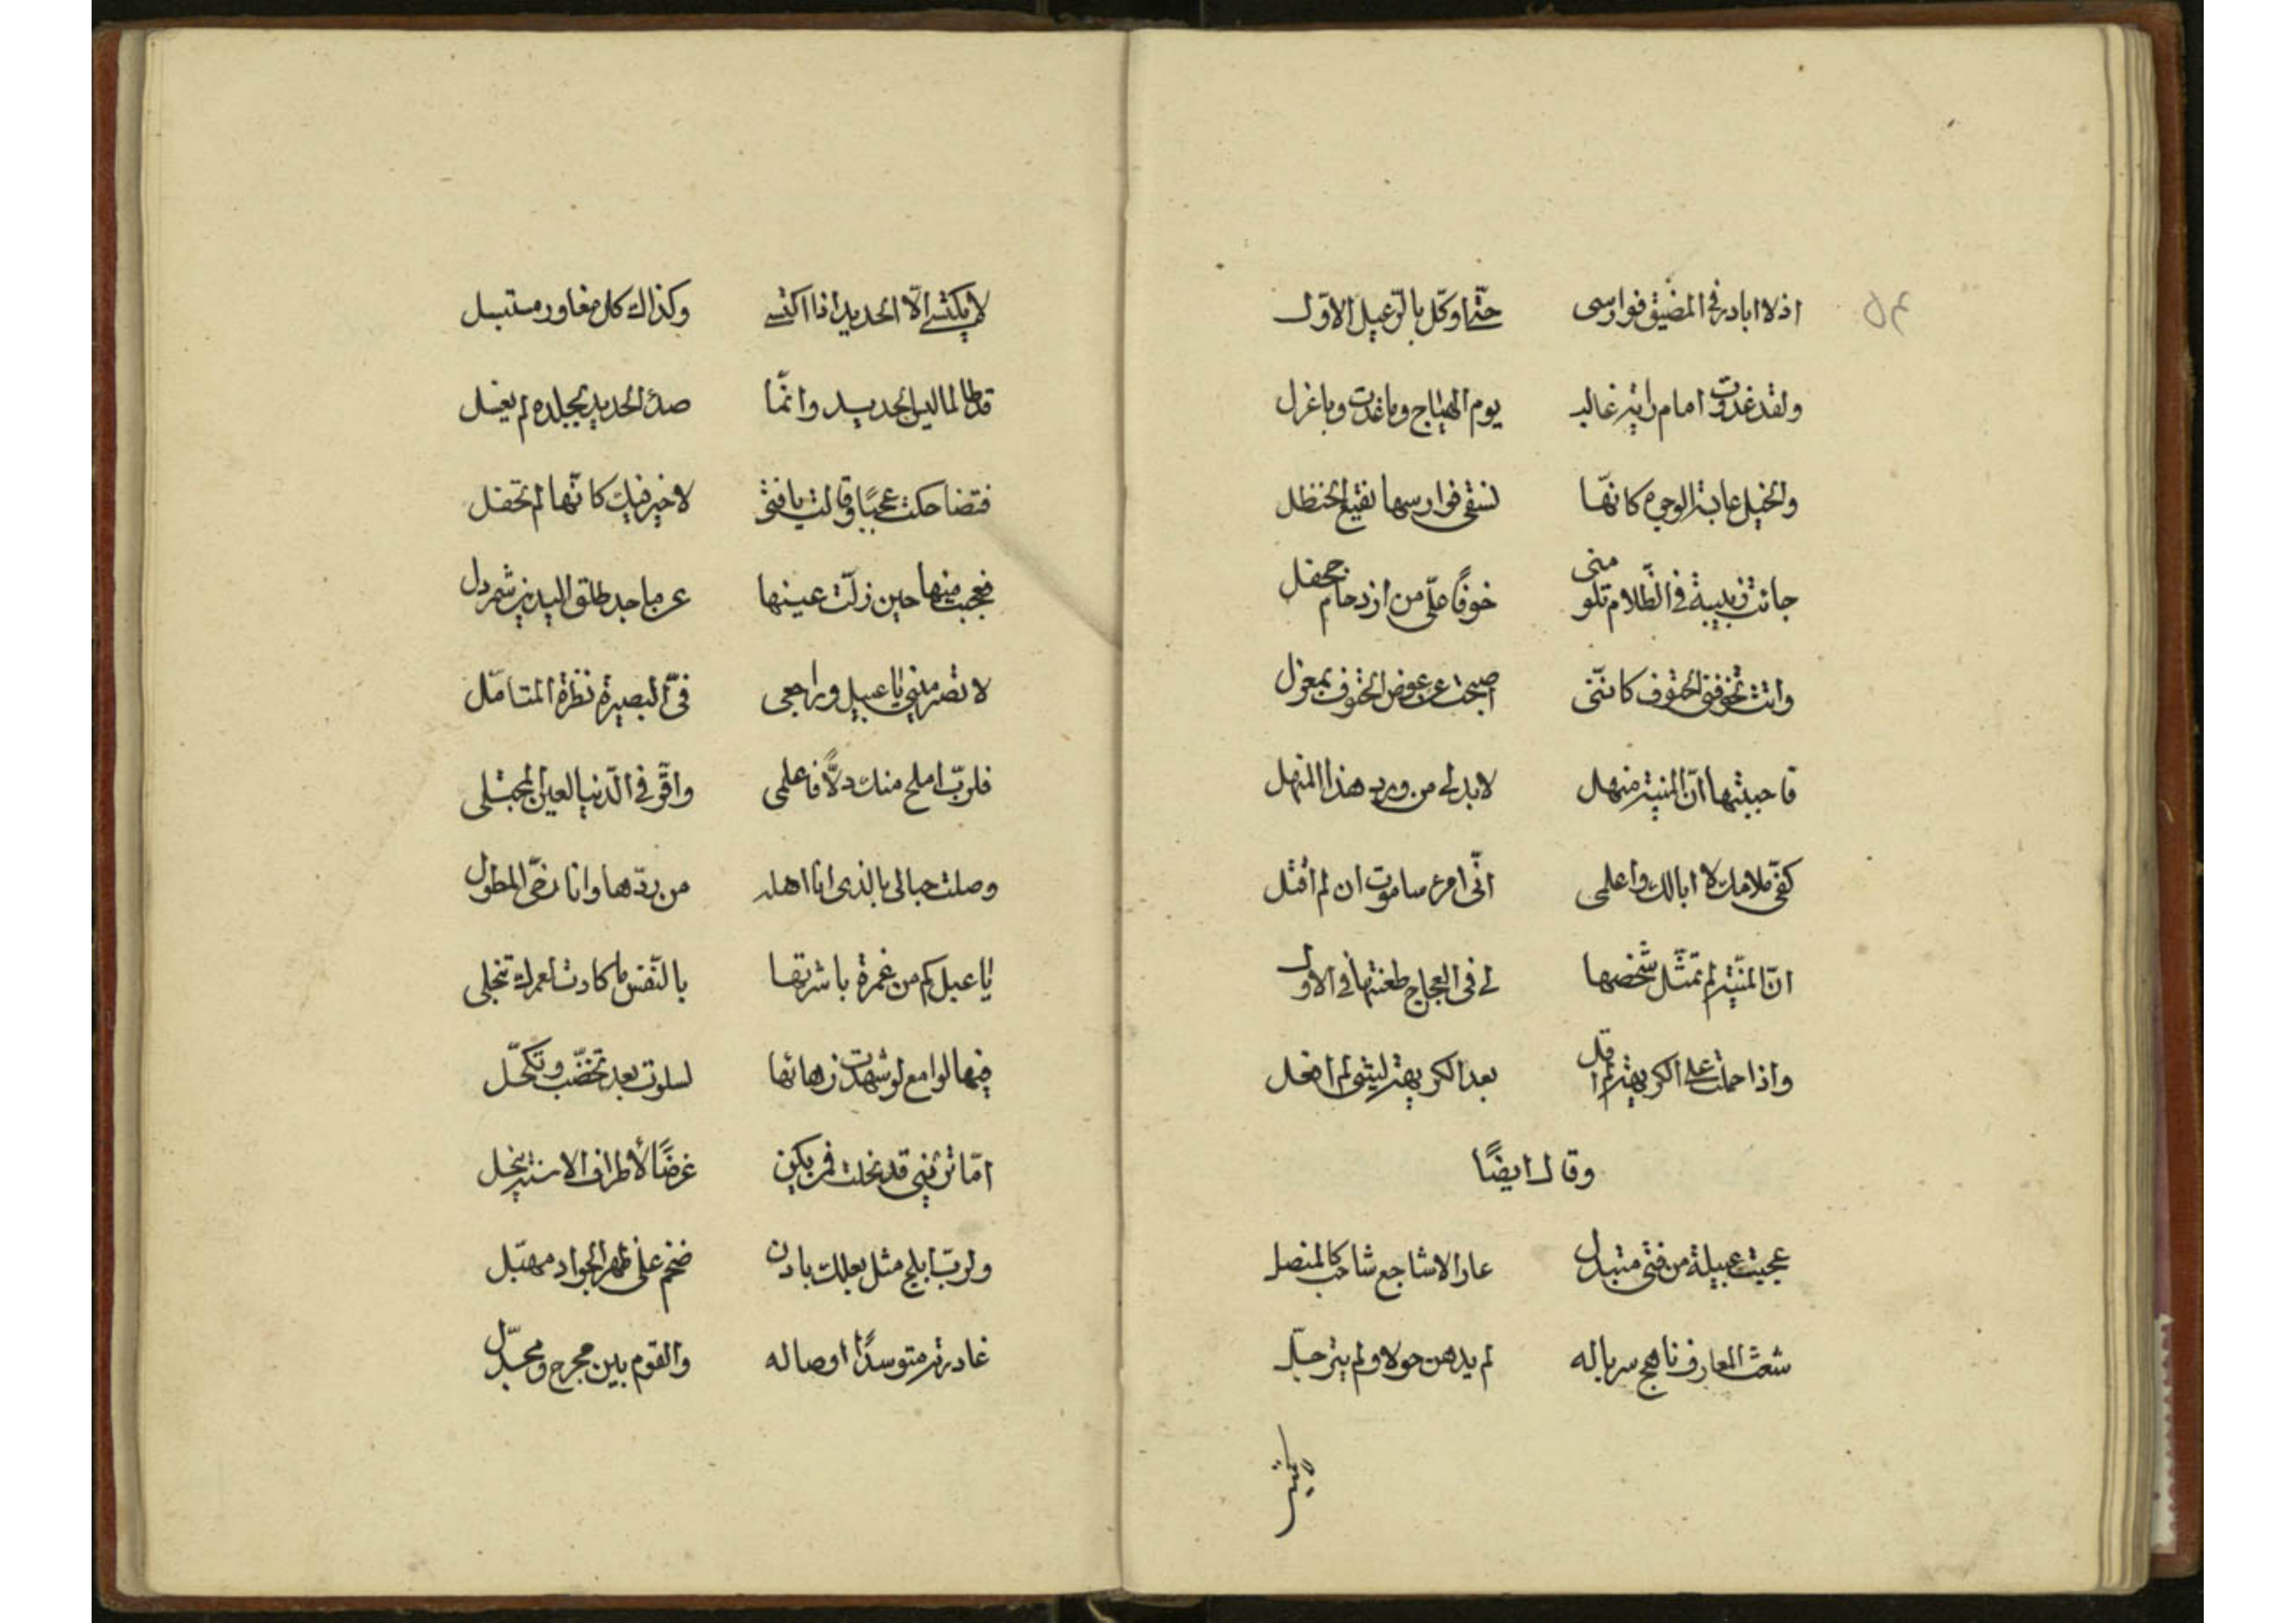 ٥٤
اذ لا ابادر فى المضيق فوارسى حتّى اوكّل بالرّعيل الاوّل
ولقد غدوت امام راية غالب يوم الهياج وما غدوت باغزل
والخيل عابسة الوجوه كانّها تسقى فوارسها نقيع الحنظل
جائت زبيبة فى الظّلام تلومنى خوفًا علىّ من ازدحام جحفل
واتت تخوفنى الحتوف كاننّى اصبحت عن عوض الحتوف بمعزل
فاجبتها انّ المنية منهل لابد لى من ورد هذا المنهل
كفّى ملامك لا ابالك واعلمى انّى امرء ساموت ان لم اقتل
انّ المنّية لو تمثّل شخصها لى فى العجاج طعنتها فى الاوّل
واذا حملت على الكريهة لم اقل بعد الكريهة ليتنى لم افعل
وقال ايضًا
عجبت عبيلة من فتى متبدل عار الاشاجع شاحب كالمنصل
شعث المعارف ناهج سرباله لم يدهن حولا ولم يترجّل
لا يكتسى الّا الحديد اذا اكتسى وكذاك كل مغاور مستبسل
قد طالما لبس الحديد وانّما صدأ الحديد بجلده لم يغسل
فتضاحكت عجبًا وقالت يا فتى لا خير فيك كانّها لم تحفل
فعجبت منها حين زلّت عينها عن ماجد طلق اليدين شمردل
لا تصرمينى يا عبيل وراجعى فىّ البصيرة نظرة المتامّل
فلربّ املح منك دلًّا فاعلمى واقرّ فى الدّنيا لعين المجتلى
وصلت حبالى بالذى انا اهله من ودّها وانا رخىّ المطول
يا عبل كم من غمرة باشرتها بالنّفس ما كادت لعمرك تنجلى
فيها لوامع لو شهدت زهائها لسلوت بعد تخضّب وتكحّل
امّا ترينى قد نحلت فمن يكن غرضًا لأطراف الاسنة ينحل
ولربّ ابلج مثل بعلك بادن ضخم على ظهر الجواد مهبّل
غادرته متوسدًا اوصاله والقوم بين مجرح ومجدّل